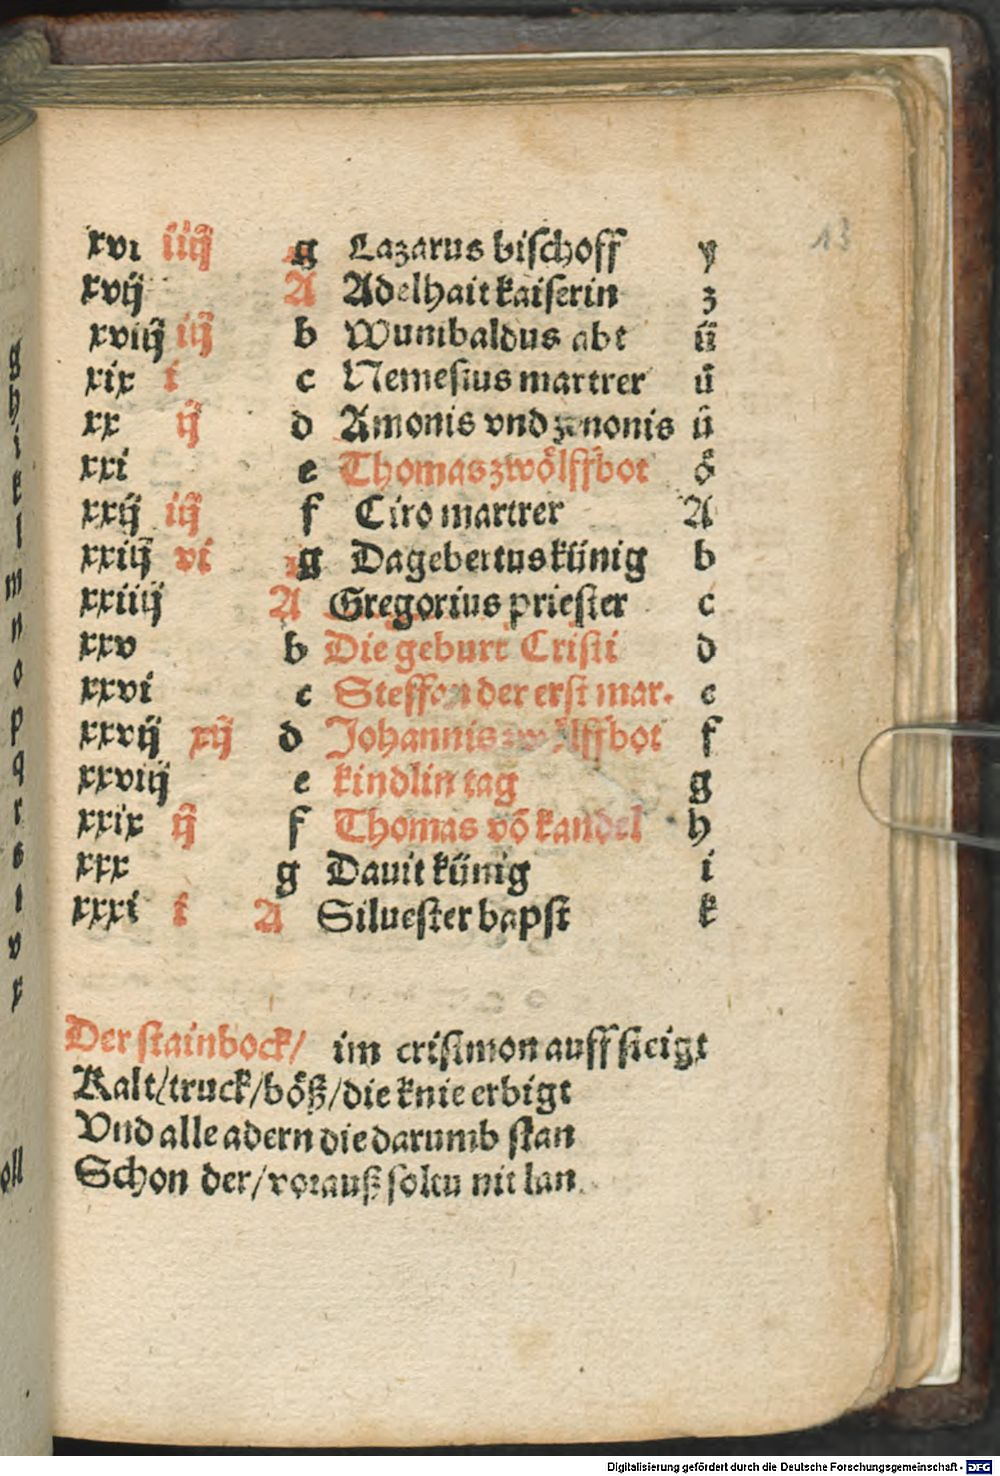 13
xvi iiij g Lazarus bischoff y
xvij A Adelhait kaiserin z
xviij iij b Wumbaldus abt ü
xix i c Nemesius martrer ů
xx ij d Amonis vnd zenonis ů
xxi e Thomas zwölffbot ö
xxij iij f Ciro martrer A
xxiij vi g Dagebertus künig b
xxiiij A Gregorius priester c
xxv b Die geburt Cristi d
xxvi c Steffon der erst mar. e
xxvij xij d Johannis zwölffbot f
xxviij e kindlin tag g
xxix ij f Thomas vō kandel h
xxx g Dauit künig i
xxxi i A Siluester bapst k
Der stainbock/ im crisimon auff steigt
Kalt/truck/böß/die knie erbigt
Vnd alle adern die darumb stan
Schon der/vorauß soltu nit lan
g
h
i
k
l
m
n
o
p
q
r
s
t
v
x
oll
Digitalisierung gefördert durch die Deutsche Forschungsgemeinschaft - DFG